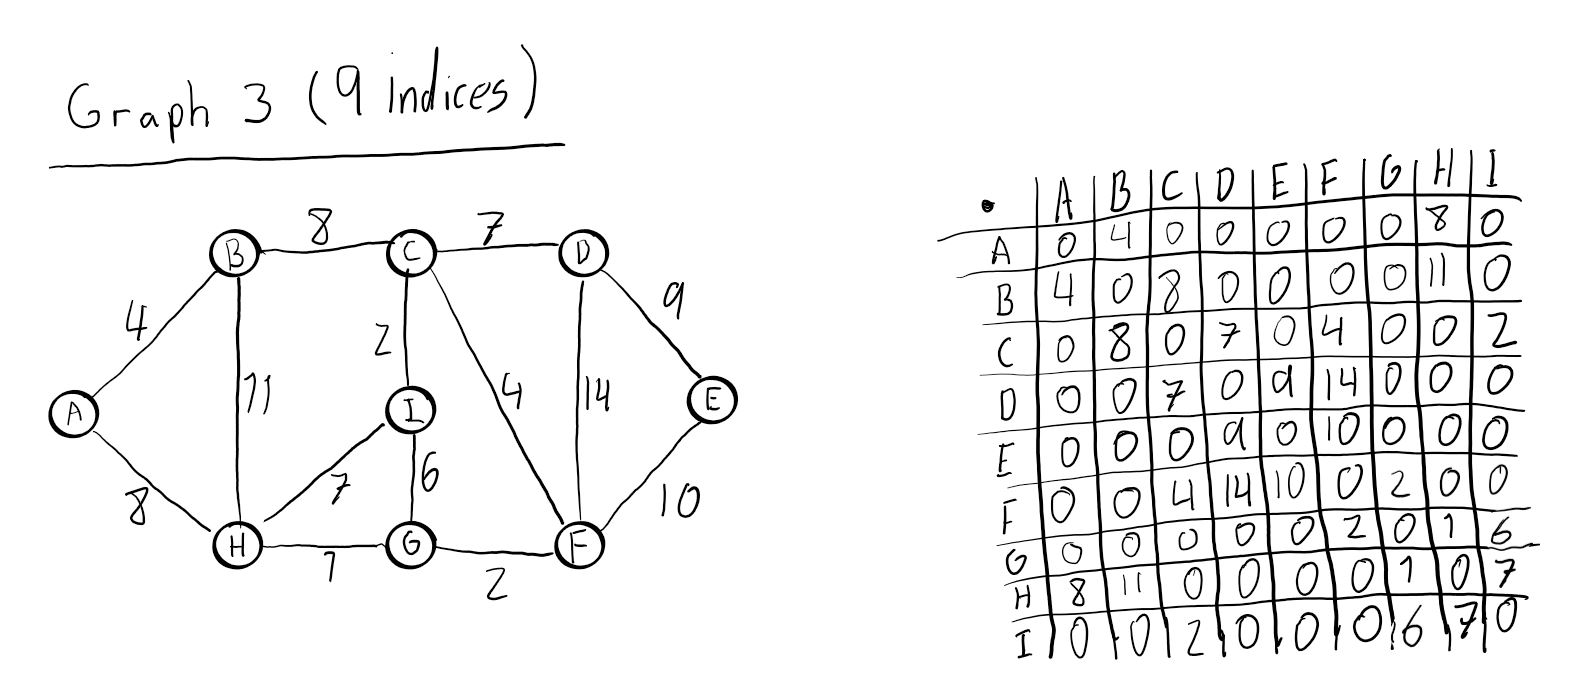 Graph 3 (9 indices)
8 7
B C D
4 9
11 2 4 14
A I E
8 7 6 10
H G F
1 2
• A B C D E F G H I
A 0 4 0 0 0 0 0 8 0
B 4 0 8 0 0 0 0 11 0
C 0 8 0 7 0 4 0 0 2
D 0 0 7 0 9 14 0 0 0
E 0 0 0 9 0 10 0 0 0
F 0 0 4 14 10 0 2 0 0
G 0 0 0 0 0 2 0 1 6
H 8 11 0 0 0 0 1 0 7
I 0 0 2 0 0 0 6 7 0